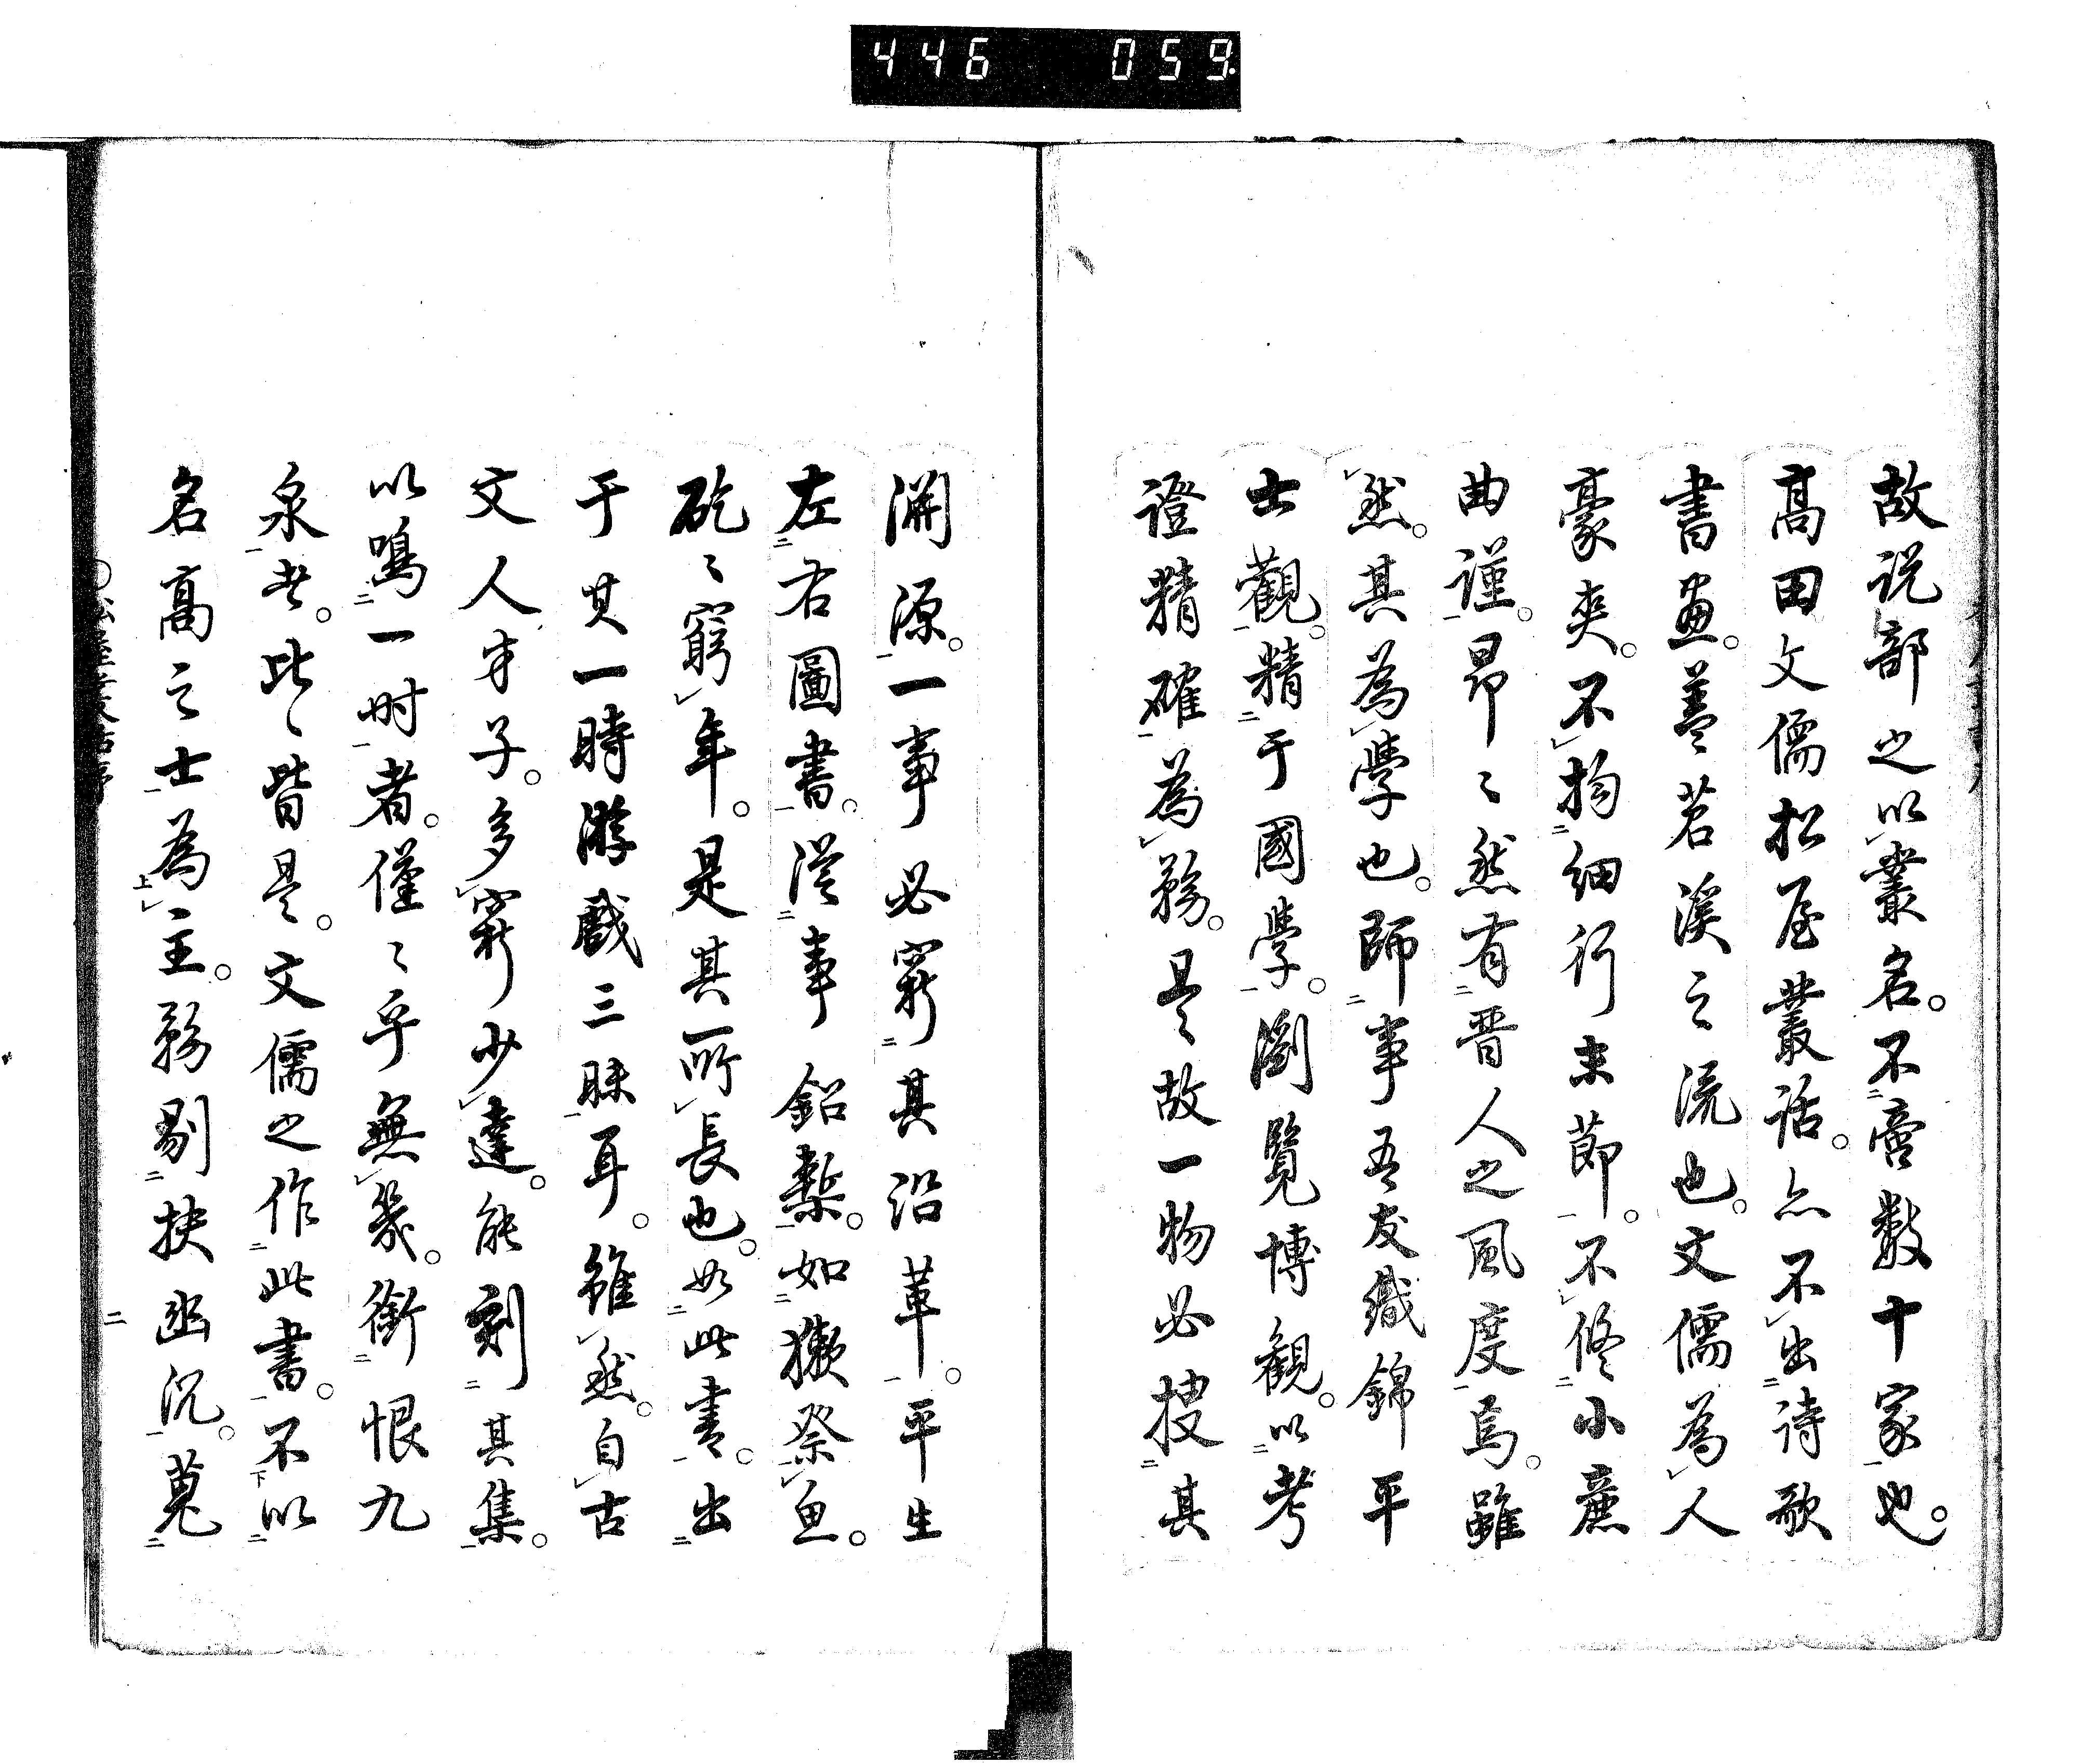 446 059
故説部之以叢名。不啻数十家也。
髙田文儒松屋叢話。亦不出詩歌
書画。蓋苕溪之流也。文儒為人
豪爽。不拘細行末節。不修小廉
曲謹。昂々然有晋人之風度焉。雖
然。其為學也。師事吾友織錦平
士觀。精于國學。瀏覧博観。以考
證精確為務。是故一物必捜其
淵源。一事必窮其沿革。平生
左右圖書。従事鉛槧。如獺祭魚。
矻々窮年。是其所長也。如此書。出
于其一時游戯三昧耳。雖然。自古
文人才子。多窮少達。能刻其集。
以鳴一时者。僅々乎無幾。銜恨九
泉者。比々皆是。文儒之作此書。不以
名髙之士為主。務剔抉幽沉。蒐
二